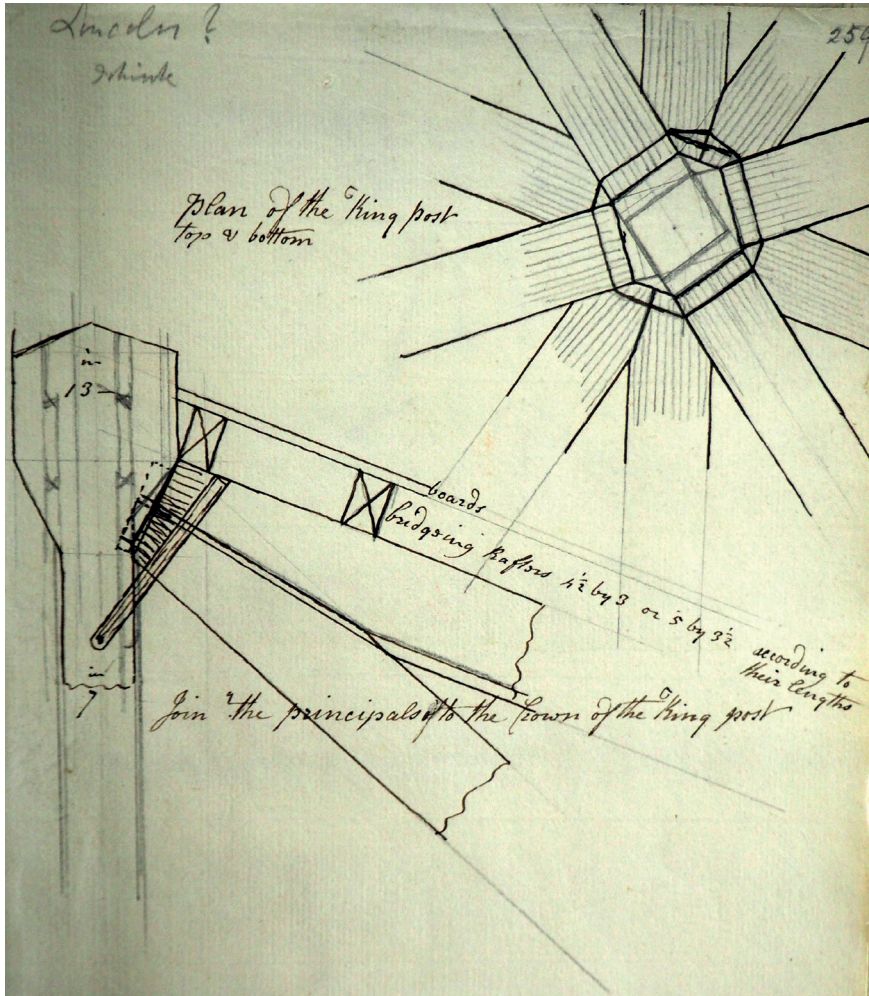 Lincoln?
I think
259
Plan of the King post
top & bottom
in
13
boards
bridgeing Rafters 4½ by 3 or 5 by 3½ according to
their lengths
in
7
Join.g the principals to the Crown of the King post